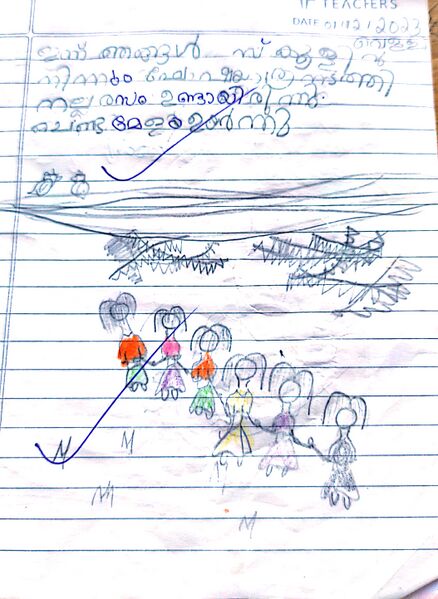 TEACHERS
DATE 01/12/2023
വെള്ളി
ഇന്ന് ഞങ്ങൾ സ്കൂളിൽ
നിന്നും ഘോഷയാത്ര നടത്തി
നല്ല രസം ഉണ്ടായിരുന്നു.
ചെണ്ട മേളം ഉണ്ടാ